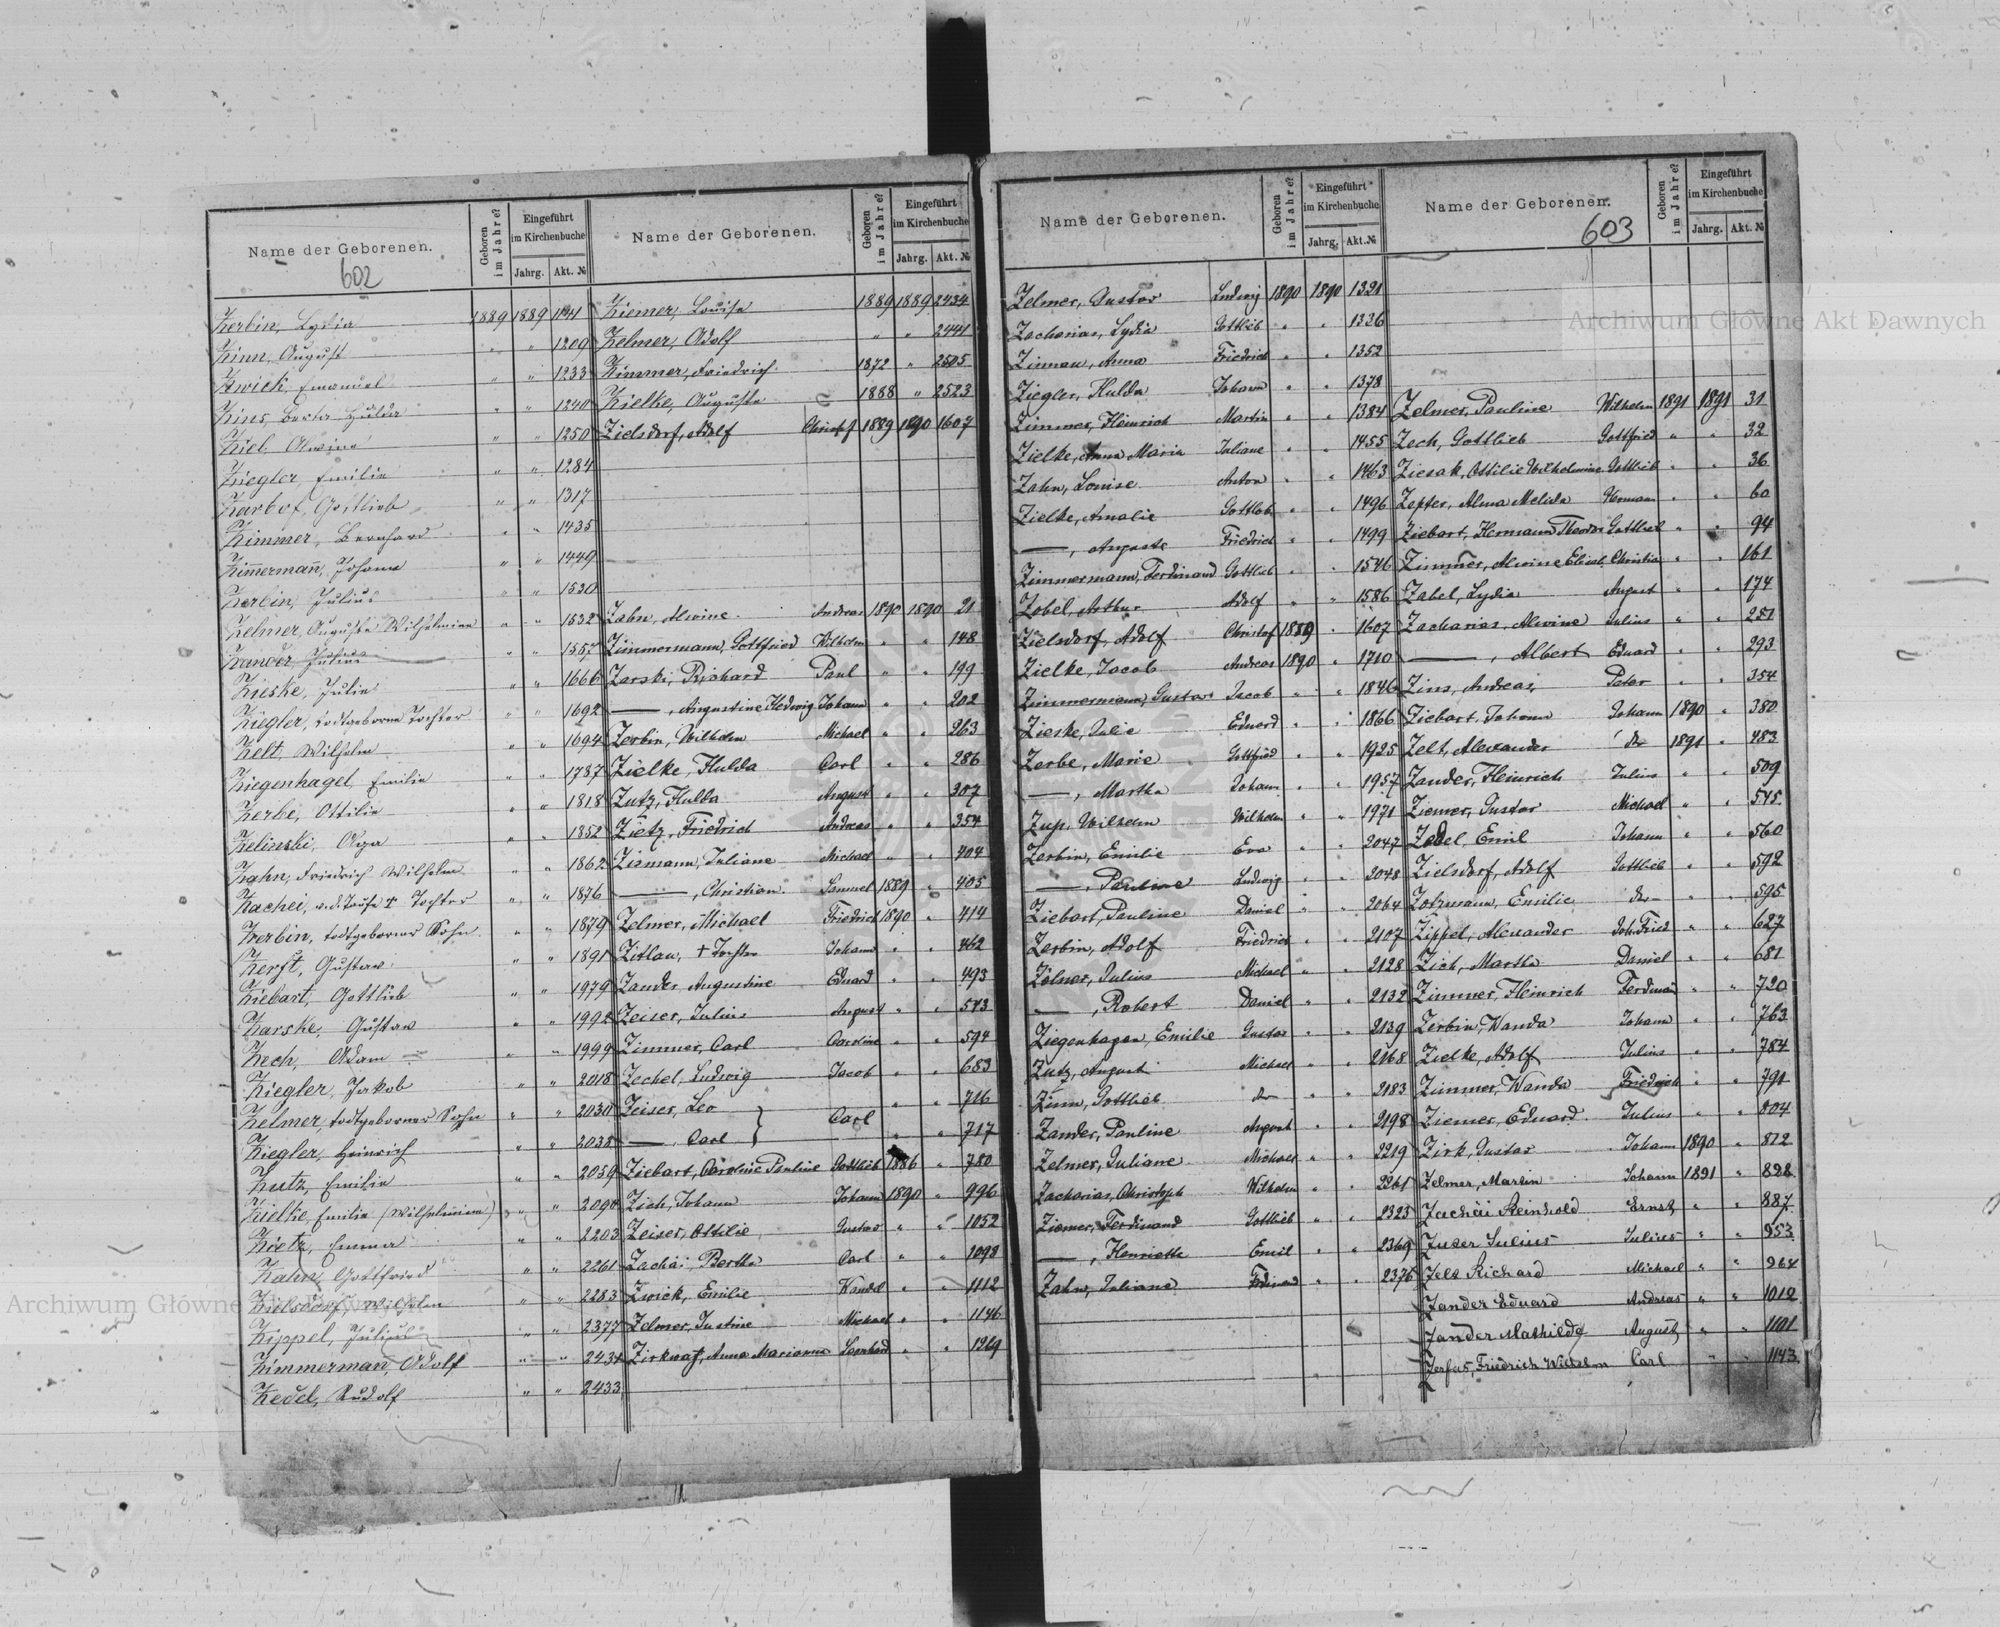 Name der Geborenen.
Geboren im Jahre?
Eingeführt im Kirchenbuche
Jahrg. Akt. №
602
Zerbin, Lydia 1889 1889 1141
Zinn, August " " 1209
Zwick, Emanuel " " 1233
Zins, Berta Hulda " " 1240
Ziel, Alwine " " 1250
Ziegler, Emilie " " 1284
Zarbof, Gottlieb " " 1317
Zimmer, Bernhard " " 1435
Zimmermann, Johann " " 1449
Zerbin, Julius " " 1530
Zelmer, Auguste Wilhelmine " " 1532
Zander, Julius " " 1557
Zieske, Julie " " 1666
Ziegler, todtgeborne Tochter " " 1692
Zelt, Wilhelm " " 1694
Ziegenhagel, Emilie " " 1787
Zerbe, Ottilie " " 1818
Zelinski, Olga " " 1852
Zahn, Friedrich Wilhelm " " 1862
Zachei, v.d. Taufe † Tochter " " 1876
Zerbin, todtgeborner Sohn " " 1879
Zerft, Gustav " " 1891
Ziebart, Gottlieb " " 1979
Zarske, Gustav " " 1992
Zech, Adam " " 1999
Ziegler, Jakob " " 2018
Zelmer, todtgeborner Sohn " " 2030
Ziegler, Heinrich " " 2038
Zutz, Emilie " " 2059
Zielke, Emilie (Wilhelmine) " " 2090
Zietz, Emma " " 2203
Zahn, Gottfried " " 2261
Zielsdorf, Wilhelm " " 2283
Zippel, Julius " " 2377
Zimmerman, Adolf " " 2431
Zedel, Rudolf " " 2433
Name der Geborenen.
Geboren im Jahre?
Eingeführt im Kirchenbuche
Jahrg. Akt. №
Ziemer, Louise 1889 1889 2434
Zelmer, Adolf " " 2441
Zimmer, Friedrich 1872 " 2505
Zielke, Auguste 1888 " 2523
Zielsdorf, Adolf Christof 1889 1890 1607
Zahn, Alwine Andreas 1890 1890 21
Zimmermann, Gottfried Wilhelm " " 148
Zarski, Richard Paul " " 199
—, Augustine Hedwig Johann " " 202
Zerbin, Wilhelm Michael " " 263
Zielke, Hulda Carl " " 286
Zutz, Hulda August " " 307
Zietz, Friedrich Andreas " " 354
Zismann, Juliane Michael " " 404
—, Christian Samuel 1889 " 405
Zelmer, Michael Friedrich 1890 " 414
Zitlau, † Tochter Johann " " 462
Zander Augustine Eduard " " 493
Zeiser, Julius August " " 543
Zimmer, Carl Caroline " " 594
Zechel, Ludwig Jacob " " 683
Zeiser, Leo " " 716
Carl
—, Carl " " 717
Ziebart, Caroline Pauline Gottlieb 1886 " 780
Zich, Johann Johann 1890 " 996
Zeiser, Ottilie Gustav " " 1052
Zachäi Bertha Carl " " 1098
Zwick, Emilie " " 1112
Zelmer, Justine Michael " " 1146
Anna Marianna Leonhard " " 1269
Name der Geborenen.
Geboren im Jahre?
Eingeführt im Kirchenbuche
Jahrg. Akt. №
Zelmer, Gustav Ludwig 1890 1890 1321
Zacharias, Lydia Gottlieb " " 1336
Zinnau, Anna Friedrich " " 1352
Ziegler, Hulda Johann " " 1378
Zimmer, Heinrich Martin " " 1384
Zielke, Anna Maria Juliane " " 1455
Zahn, Louise Anton " " 1463
Zielke, Amalie Gottlieb " " 1496
—, Auguste Friedrich " " 1499
Zimmermann, Ferdinand Gottlieb " " 1546
Zobel, Arthur Adolf " " 1586
Zielsdorf, Adolf Christof 1889 " 1607
Zielke, Jacob Andreas 1890 " 1710
Zimmermann, Gustav Jacob " " 1846
Zieske, Julie Eduard " " 1866
Zerbe, Marie Gottfried " " 1925
—, Martha Johann " " 1957
Zup, Wilhelm Wilhelm " " 1971
Zerbin, Emilie Eva " " 2047
—, Pauline Ludwig " " 2048
Ziebart, Pauline Daniel " " 2064
Zerbin, Adolf Friedrich " " 2107
Zelmer, Julius Michael " " 2128
—, Robert Daniel " " 2132
Ziegenhagen, Emilie Gustav " " 2139
Zutz, August Michael " " 2168
Zinn, Gottlieb do " " 2183
Zander, Pauline August " " 2198
Zelmer, Juliane Michael " " 2219
Zacharias, Christoph Wilhelm " " 2261
Ziemer, Ferdinand Gottlieb " " 2323
—, Henriette Emil " " 2369
Zahn, Juliane Ferdinand " " 2376
Name der Geborenen.
Geboren im Jahre?
Eingeführt im Kirchenbuche
Jahrg. Akt. №
603
Zelmer, Pauline Wilhelm 1891 1891 31
Zech, Gottlieb Gottfried " " 32
Ziesak, Ottilie Wilhelmine Gottlieb " " 36
Zepter, Alma Melida Herman " " 60
Ziebart, Hermann Theodor Gottlieb " " 94
Zimmer, Alwine Elisab. Christian " " 161
Zabel, Lydia August " " 174
Zacharias, Alwine Julius " " 251
—, Albert Eduard " " 293
Zins, Andreas Peter " " 354
Ziebart, Johann Johann 1890 " 380
Zelt, Alexander do 1891 " 483
Zander, Heinrich Julius " " 509
Ziemer, Gustav Michael " " 545
Zedel, Emil Johann " " 560
Zielsdorf, Adolf Gottlieb " " 592
Zotzmann, Emilie do " " 595
Zippel, Alexander Joh. Fried " " 627
Zich, Martha Daniel " " 681
Zimmer, Heinrich Ferdinand " " 720
Zerbin, Wanda Johann " " 763
Zielke, Adolf Julius " " 784
Zimmer, Wanda Friedrich " " 791
Ziemer, Eduard Julius " " 804
Zirk, Gustav Johann 1890 " 812
Zelmer, Martin Johann 1891 " 828
Zachäi Reinhold Ernst " " 887
Julius Julius " " 953
Richard Michael " " 964
Zander Eduard Andreas " " 1012
Zander Mathilde August " " 1101
Zerfas, Friedrich Wilhelm Carl " " 1143
Archiwum Główne Akt Dawnych
Archiwum Główne Akt Dawnych